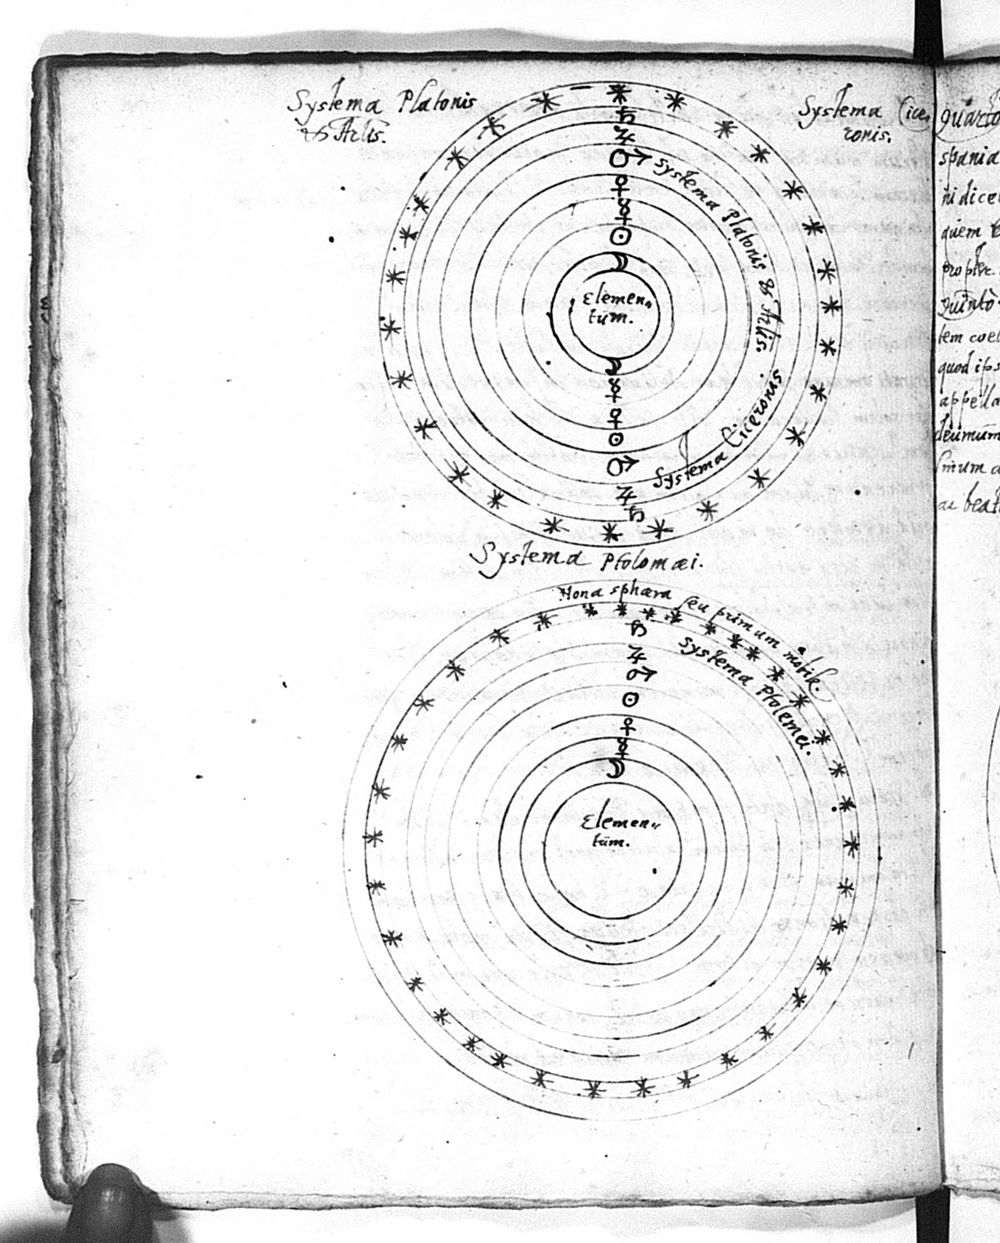 Systema Platonis
& Artis.
Systema Cice,
ronis.
♄
♃
♂
♀
☿
☉
☽
Elemen„
tum.
☽
☿
♀
☉
♂
♃
♄
Systema Platonis & Artis.
Systema Ciceronis
Systema Ptolomæi.
Nona sphæra seu primum mobile.
Systema Ptolemei.
♄
♃
♂
☉
♀
☿
☽
Elemen„
tum.
quarto
spania
ni dice
quem
propter
quinto
tem coel
quod ips
appella
ac beat